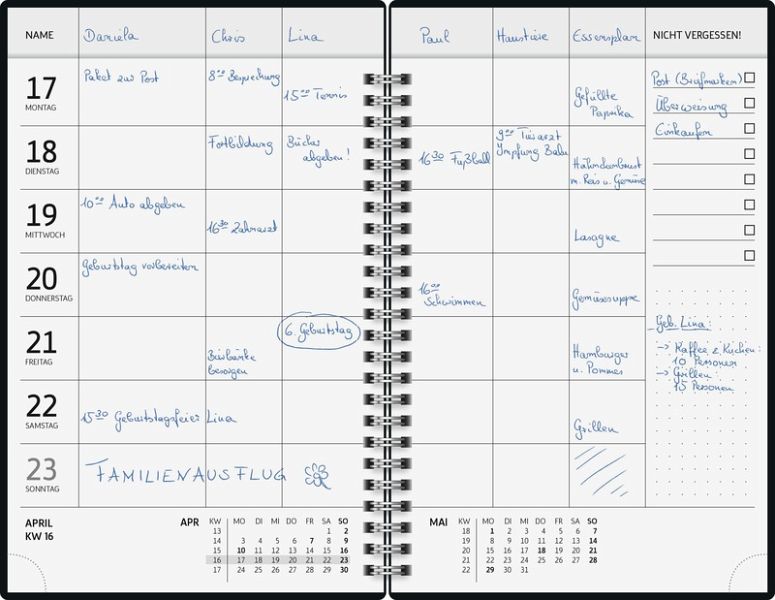 NAME Daniela Chris Lina Paul Haustiere Essensplan NICHT VERGESSEN!
17 MONTAG
Paket zur Post
8⁰⁰ Besprechung
15⁰⁰ Tennis
Gefüllte
Paprika
Post (Briefmarken)
Überweisung
Einkaufen
18 DIENSTAG
Fortbildung
Bücher
abgeben!
16³⁰ Fußball
9⁰⁰ Tierarzt
Impfung
Hähnchenbrust
m. Reis u. Gemüse
19 MITTWOCH
10⁰⁰ Auto abgeben
16³⁰ Zahnarzt
Lasagne
20 DONNERSTAG
Geburtstag vorbereiten
16⁰⁰
Schwimmen
Gemüsesuppe
21 FREITAG
Bierbänke
besorgen
6. Geburtstag
Hamburger
u. Pommes
Geb. Lina:
→ Kaffee & Kuchen:
10 Personen
→ Grillen:
15 Personen
22 SAMSTAG
15³⁰ Geburtstagsfeier Lina
Grillen
23 SONNTAG
FAMILIENAUSFLUG
APRIL
KW 16
APR KW MO DI MI DO FR SA SO
13 1 2
14 3 4 5 6 7 8 9
15 10 11 12 13 14 15 16
16 17 18 19 20 21 22 23
17 24 25 26 27 28 29 30
MAI KW MO DI MI DO FR SA SO
18 1 2 3 4 5 6 7
19 8 9 10 11 12 13 14
20 15 16 17 18 19 20 21
21 22 23 24 25 26 27 28
22 29 30 31